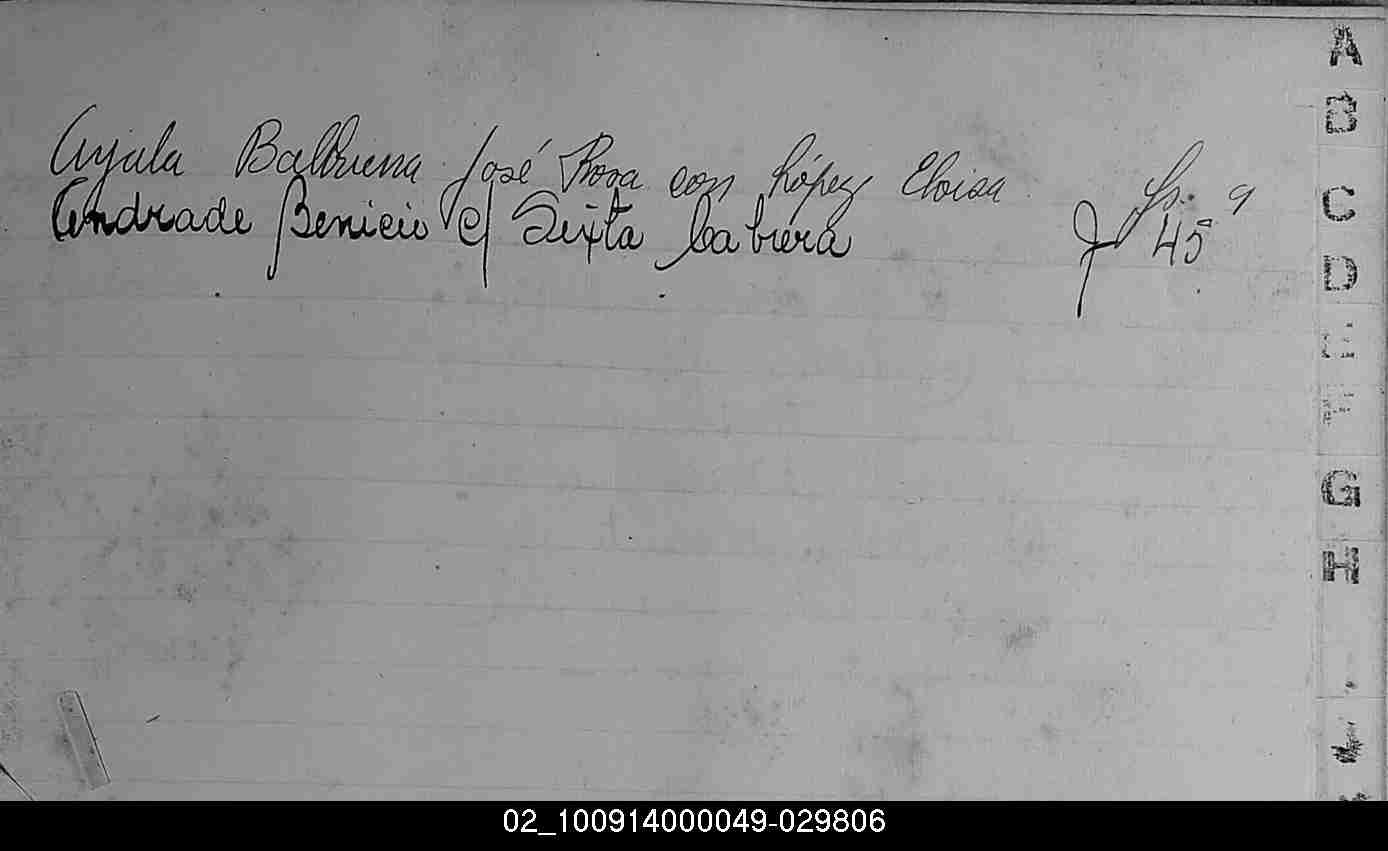 Ayala Balbuena José Rosa con López Eloisa fs. 9
Andrade Benicio c/ Sixta Cabrera f 45
A
B
C
D
E
F
G
H
02_100914000049-029806